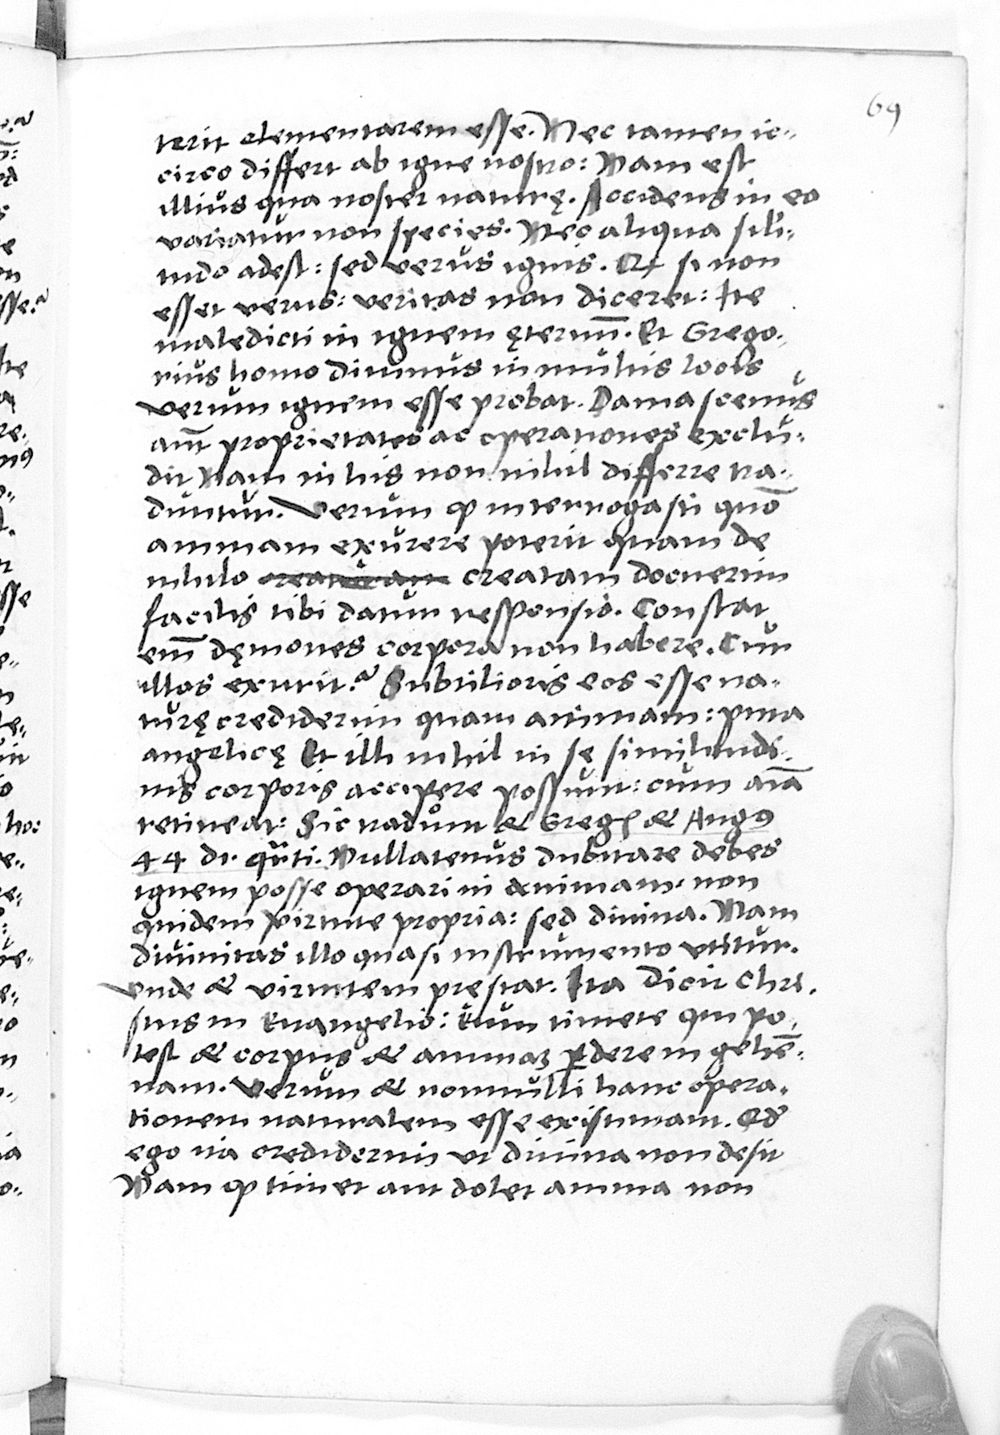 69
terit elementarem esse. Nec tamen ic-
circo differt ab igne nostro: Nam est
illius qua noster naturę. Accidens in eo
variatur non species. Nec aliqua sili-
tudo adest: sed verus ignis. Qx si non
esset verus: veritas non diceret: Ite
maledicti in ignem ęternū. Et Grego-
rius homo diuinus in multis locis
verum ignem esse probat. Damascenus
aūt proprietates ac operationes exclu-
dit Nam in his non nihil differre tra-
duntur. Verum qp interrogasti quō
animam exurere poterit quam de
nihilo creatam docuerim
facilis tibi datur responsio. Constat
em̄ dęmones corpora non habere. Cur
illos exurit? Subtilioris eos esse na-
turę crediderim quam animam: puta
angelicę Et illi nihil in se similitudi-
nis corporis accipere possunt: cum aīa
retineat: Sic tradunt & Greg & Aug9
44 di. q̄rti. Nullatenus dubitare debes
ignem posse operari in animam. non
quidem virtute propria: sed diuina. Nam
diuinitas illo quasi instrumento vtitur.
vnde & virtutem prestat. Ita dicit Chri-
stus in Euangelio: Eum timete qui po-
test & corpus & animaȝ ꝑdere in gehē-
nam. Verum & nonnulli hanc opera-
tionem naturalem esse existimant. Qd
ego ita crediderim vt diuina non desit
Nam qp timet aut dolet anima non